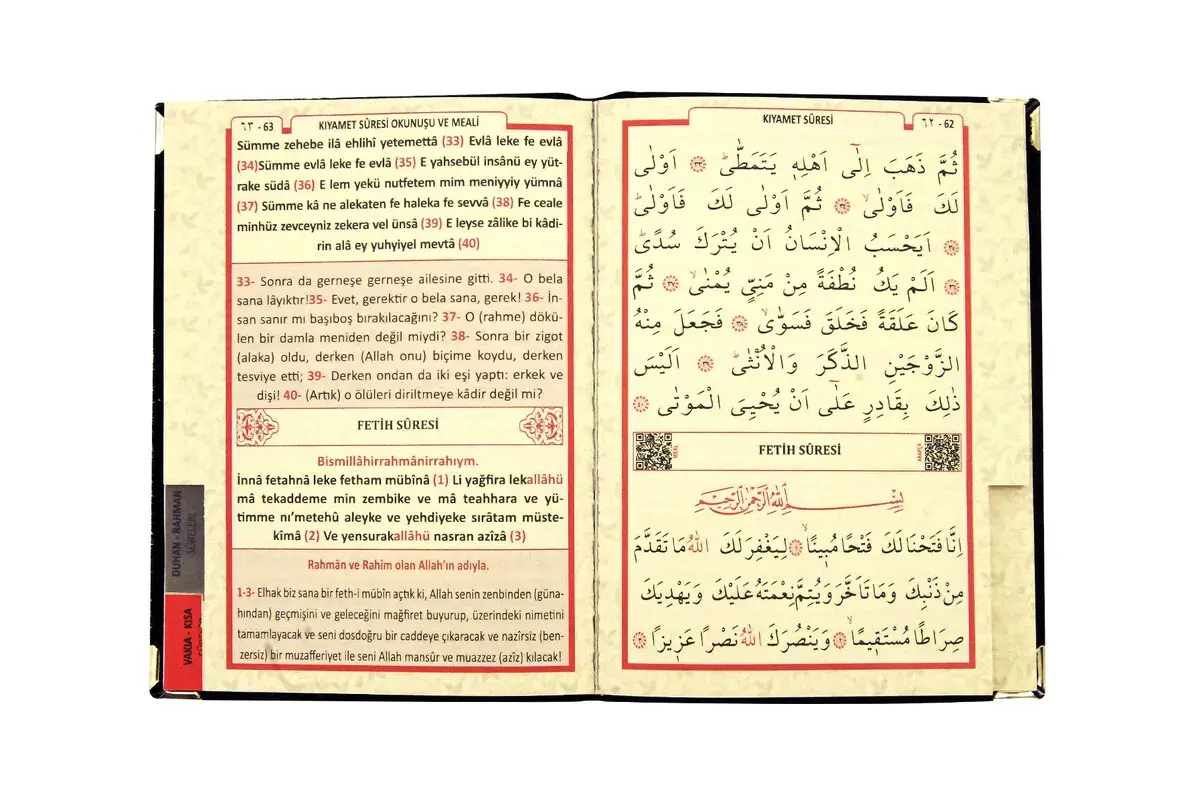 ٦٣ - 63
KIYAMET SÛRESİ OKUNUŞU VE MEALİ
Sümme zehebe ilâ ehlihî yetemettâ (33) Evlâ leke fe evlâ
(34)Sümme evlâ leke fe evlâ (35) E yahsebül insânü ey yüt-
rake südâ (36) E lem yekü nutfetem mim meniyyiy yümnâ
(37) Sümme kâ ne alekaten fe haleka fe sevvâ (38) Fe ceale
minhüz zevceyniz zekera vel ünsâ (39) E leyse zâlike bi kâdi-
rin alâ ey yuhyiyel mevtâ (40)
33- Sonra da gerneşe gerneşe ailesine gitti. 34- O bela
sana lâyıktır!35- Evet, gerektir o bela sana, gerek! 36- İn-
san sanır mı başıboş bırakılacağını? 37- O (rahme) dökü-
len bir damla meniden değil miydi? 38- Sonra bir zigot
(alaka) oldu, derken (Allah onu) biçime koydu, derken
tesviye etti; 39- Derken ondan da iki eşi yaptı: erkek ve
dişi! 40- (Artık) o ölüleri diriltmeye kâdir değil mi?
FETİH SÛRESİ
Bismillâhirrahmânirrahıym.
İnnâ fetahnâ leke fetham mübînâ (1) Li yağfira lekallâhü
mâ tekaddeme min zembike ve mâ teahhara ve yü-
timme nı’metehû aleyke ve yehdiyeke sırâtam müste-
kîmâ (2) Ve yensurakallâhü nasran azîzâ (3)
Rahmân ve Rahim olan Allah’ın adıyla.
1-3- Elhak biz sana bir feth-i mübîn açtık ki, Allah senin zenbinden (güna-
hından) geçmişini ve geleceğini mağfiret buyurup, üzerindeki nimetini
tamamlayacak ve seni dosdoğru bir caddeye çıkaracak ve nazîrsiz (ben-
zersiz) bir muzafferiyet ile seni Allah mansûr ve muazzez (azîz) kılacak!
DUHAN - RAHMAN
SÛRELERİ
VAKIA - KISA
KIYAMET SÛRESİ
٦٢ - 62
ثُمَّ ذَهَبَ اِلٰٓى اَهْلِه۪ يَتَمَطّٰىۜ ﴿٣٣﴾ اَوْلٰى
لَكَ فَاَوْلٰىۙ ﴿٣٤﴾ ثُمَّ اَوْلٰى لَكَ فَاَوْلٰىۜ
﴿٣٥﴾ اَيَحْسَبُ الْاِنْسَانُ اَنْ يُتْرَكَ سُدًىۜ
﴿٣٦﴾ اَلَمْ يَكُ نُطْفَةً مِنْ مَنِيٍّ يُمْنٰىۙ ﴿٣٧﴾ ثُمَّ
كَانَ عَلَقَةً فَخَلَقَ فَسَوّٰىۙ ﴿٣٨﴾ فَجَعَلَ مِنْهُ
الزَّوْجَيْنِ الذَّكَرَ وَالْاُنْثٰىۜ ﴿٣٩﴾ اَلَيْسَ
ذٰلِكَ بِقَادِرٍ عَلٰٓى اَنْ يُحْيِيَ الْمَوْتٰى ﴿٤٠﴾
MEAL
FETİH SÛRESİ
ARAPÇA
بِسْمِ اللّٰهِ الرَّحْمٰنِ الرَّحِيمِ
اِنَّا فَتَحْنَا لَكَ فَتْحًا مُبِينًاۙ ﴿١﴾ لِيَغْفِرَ لَكَ اللّٰهُ مَا تَقَدَّمَ
مِنْ ذَنْبِكَ وَمَا تَاَخَّرَ وَيُتِمَّ نِعْمَتَهُ عَلَيْكَ وَيَهْدِيَكَ
صِرَاطًا مُسْتَقِيمًاۙ ﴿٢﴾ وَيَنْصُرَكَ اللّٰهُ نَصْرًا عَزِيزًا ﴿٣﴾